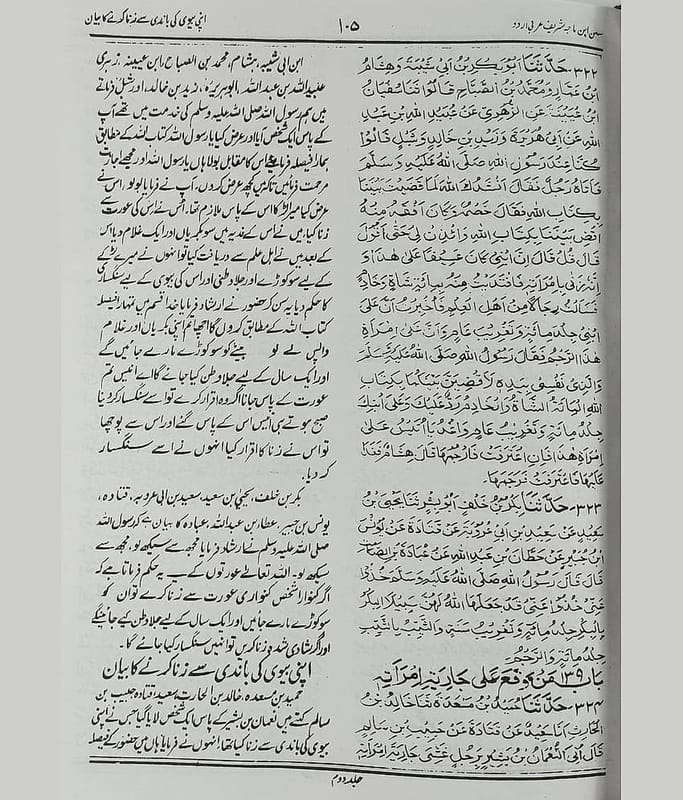 سنن ابن ماجہ شریف عربی اردو
۱۰۵
اپنی بیوی کی باندی سے زنا کرنے کا بیان
۳۲۲- حَدَّثَنَا اَبُوْ بَكْرِ بْنُ اَبِیْ شَيْبَةَ وَهِشَامُ
ابْنُ عَمَّارٍ وَمُحَمَّدُ بْنُ الصَّبَّاحِ قَالُوْا ثَنَا سُفْيَانُ
ابْنُ عُيَيْنَةَ عَنِ الزُّهْرِيِّ عَنْ عُبَيْدِ اللهِ بْنِ عَبْدِ
اللهِ عَنْ اَبِیْ هُرَيْرَةَ وَزَيْدِ بْنِ خَالِدٍ وَشِبْلٍ قَالُوْا
كُنَّا عِنْدَ رَسُوْلِ اللهِ صَلَّى اللهُ عَلَيْهِ وَسَلَّمَ
فَاَتَاهُ رَجُلٌ فَقَالَ اَنْشُدُكَ اللهَ لَمَا قَضَيْتَ بَيْنَنَا
بِكِتَابِ اللهِ فَقَالَ خَصْمُهُ وَكَانَ اَفْقَهَ مِنْهُ
اقْضِ بَيْنَنَا بِكِتَابِ اللهِ وَائْذَنْ لِیْ حَتّٰى اَقُوْلَ
قَالَ قُلْ قَالَ اِنَّ ابْنِیْ كَانَ عَسِيْفًا عَلٰى هٰذَا وَ
اِنَّهُ زَنٰى بِامْرَاَتِهٖ فَافْتَدَيْتُ مِنْهُ بِمِائَةِ شَاةٍ وَخَادِمٍ
فَسَاَلْتُ رِجَالًا مِنْ اَهْلِ الْعِلْمِ فَاُخْبِرْتُ اَنَّ عَلٰى
ابْنِیْ جَلْدَ مِائَةٍ وَتَغْرِيْبَ عَامٍ وَاَنَّ عَلٰى امْرَاَةِ
هٰذَا الرَّجْمَ فَقَالَ رَسُوْلُ اللهِ صَلَّى اللهُ عَلَيْهِ وَسَلَّمَ
وَالَّذِیْ نَفْسِیْ بِيَدِهٖ لَاَقْضِيَنَّ بَيْنَكُمَا بِكِتَابِ
اللهِ الْمِائَةُ الشَّاةُ وَالْخَادِمُ رَدٌّ عَلَيْكَ وَعَلَى ابْنِكَ
جَلْدُ مِائَةٍ وَتَغْرِيْبُ عَامٍ وَاغْدُ يَا اُنَيْسُ عَلٰى
امْرَاَةِ هٰذَا فَاِنِ اعْتَرَفَتْ فَارْجُمْهَا قَالَ هِشَامٌ فَغَدَا
عَلَيْهَا فَاعْتَرَفَتْ فَرَجَمَهَا۔
۳۲۳- حَدَّثَنَا بَكْرُ بْنُ خَلَفٍ اَبُوْ بِشْرٍ ثَنَا يَحْيَى بْنُ
سَعِيْدٍ عَنْ سَعِيْدِ بْنِ اَبِیْ عَرُوْبَةَ عَنْ قَتَادَةَ عَنْ يُوْنُسَ
ابْنِ جُبَيْرٍ عَنْ حِطَّانَ بْنِ عَبْدِ اللهِ عَنْ عُبَادَةَ بْنِ الصَّامِتِ
قَالَ قَالَ رَسُوْلُ اللهِ صَلَّى اللهُ عَلَيْهِ وَسَلَّمَ خُذُوْا
عَنِّیْ خُذُوْا عَنِّیْ قَدْ جَعَلَ اللهُ لَهُنَّ سَبِيْلًا الْبِكْرُ
بِالْبِكْرِ جَلْدُ مِائَةٍ وَتَغْرِيْبُ سَنَةٍ وَالثَّيِّبُ بِالثَّيِّبِ
جَلْدُ مِائَةٍ وَالرَّجْمُ
بَاب ۱۳۹ مَنْ وَقَعَ عَلٰى جَارِيَةِ امْرَاَتِهٖ
۳۲۴- حَدَّثَنَا حُمَيْدُ بْنُ مَسْعَدَةَ ثَنَا خَالِدُ بْنُ
الْحَارِثِ اَنَا سَعِيْدٌ عَنْ قَتَادَةَ عَنْ حَبِيْبِ بْنِ سَالِمٍ
قَالَ اُتِیَ النُّعْمَانُ بْنُ بَشِيْرٍ بِرَجُلٍ غَشِیَ جَارِيَةَ امْرَاَتِهٖ
ابن ابی شیبہ، ہشام، محمد بن الصباح، ابن عیینہ، زہری
عبید اللہ بن عبد اللہ، ابوہریرہ، زید بن خالد، اور شبل فرماتے
ہیں ہم رسول اللہ صلی اللہ علیہ وسلم کی خدمت میں تھے آپ
کے پاس ایک شخص آیا اور عرض کیا یا رسول اللہ کتاب اللہ کے مطابق
ہمارا فیصلہ فرما دیجئے اس کا مقابل بولا ہاں یا رسول اللہ اور مجھے اجازت
مرحمت فرمائیں تاکہ میں کچھ عرض کروں۔ آپ نے فرمایا بولو، اس نے
عرض کیا میرا لڑکا اس کے پاس ملازم تھا۔ اس نے اس کی عورت سے
زنا کیا، میں نے اس کے فدیہ میں سو بکریاں اور ایک غلام دیا اس
کے بعد میں نے اہل علم سے دریافت کیا تو انہوں نے میرے لڑکے
کے لیے سو کوڑے اور جلا وطنی اور اس کی بیوی کے لیے سنگسار
کا حکم دیا یہ سن کر حضور نے ارشاد فرمایا خدا کی قسم میں تمہارا فیصلہ
کتاب اللہ کے مطابق کروں گا اچھا تم اپنی بکریاں اور غلام
واپس لے لو بیٹے کو سو کوڑے مارے جائیں گے
اور ایک سال کے لیے جلا وطن کیا جائے گا اے انیس تم
عورت کے پاس جانا اگر وہ اقرار کرے تو اسے سنگسار کر دینا
صبح ہوتے ہی انیس اس کے پاس گئے اور اس سے پوچھا
تو اس نے زنا کا اقرار کیا انہوں نے اسے سنگسار
کر دیا۔
بکر بن خلف، یحییٰ بن سعید، سعید بن ابی عروبہ، قتادہ،
یونس بن جبیر، حطان بن عبد اللہ، عبادہ کا بیان ہے کہ رسول اللہ
صلی اللہ علیہ وسلم نے ارشاد فرمایا مجھ سے سیکھ لو، مجھ سے
سیکھ لو۔ اللہ تعالےٰ عورتوں کے لیے یہ حکم فرماتا ہے کہ
اگر کنوارا شخص کنواری عورت سے زنا کرے تو ان کو
سو کوڑے مارے جائیں اور ایک سال کے لیے جلا وطن کیے جائینگے
اور اگر شادی شدہ زنا کریں تو انہیں سنگسار کیا جائے گا۔
اپنی بیوی کی باندی سے زنا کرنے کا بیان
حمید بن مسعدہ، خالد بن الحارث، سعید، قتادہ، حبیب بن
سالم کہتے ہیں نعمان بن بشیر کے پاس ایک شخص لایا گیا جس نے اپنی
بیوی کی باندی سے زنا کیا تھا، انہوں نے فرمایا ہاں میں حضور کے فیصلہ
جلد دوم